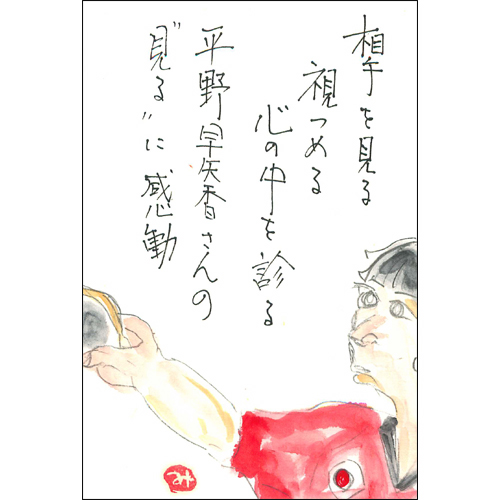 相手を見る
視つめる
心の中を診る
平野早矢香さんの
"見る"に感動
み